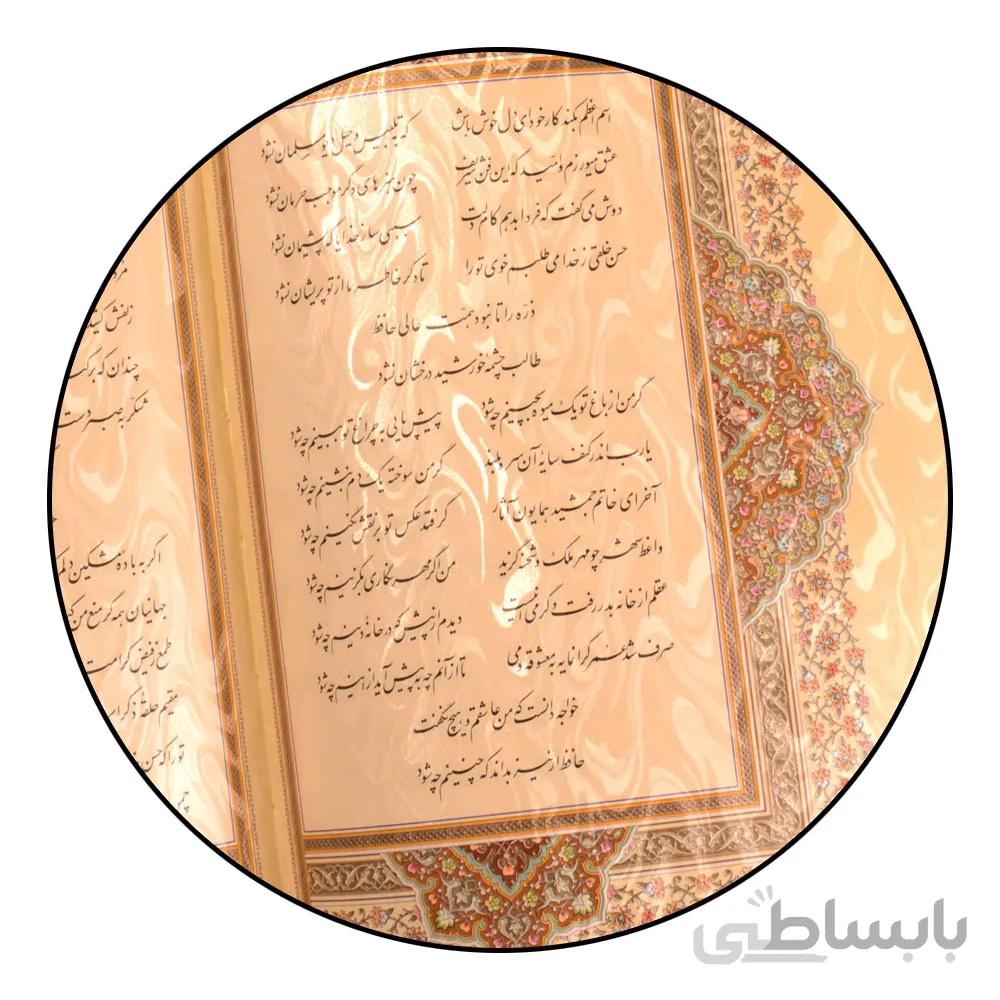 اسم اعظم بکند کار خود ای دل خوش باش که بتلبیس و حیل دیو مسلمان نشود
عشق میورزم و امید که این فن شریف چون هنرهای دگر موجب حرمان نشود
دوش می گفت که فردا بدهم کام دلت سببی ساز خدایا که پشیمان نشود
حسن خلقی ز خدا می طلبم خوی تو را تا دگر خاطر ما از تو پریشان نشود
ذرّه را تا نبود همت عالی حافظ
طالب چشمهٔ خورشید درخشان نشود
گر من از باغ تو یک میوه بچینم چه شود پیش پایی به چراغ تو ببینم چه شود
یارب اندر کنف سایهٔ آن سرو بلند گر من سوخته یک دم بنشینم چه شود
آخر ای خاتم جمشید همایون آثار گر فتد عکس تو بر نقش نگینم چه شود
واعظ شهر چو مهر ملک و شحنه گزید من اگر مهر نگاری بگزینم چه شود
عقلم از خانه بدر رفت و گر می اینست دیدم از پیش که در خانهٔ دینم چه شود
صرف شد عمر گرانمایه به معشوقه و می تا از آنم چه به پیش آید ازینم چه شود
خواجه دانست که من عاشقم و هیچ نگفت
حافظ ار نیز بداند که چنینم چه شود
زلفش کشید
چندان که بر کنا
شکر به صبر دست
اگر به بادهٔ مشکین دلم
جهانیان همه گر منع من ک
طمع ز فیض کرامت
مقیم حلقهٔ ذکر است
تو را که حسن
بابساطی